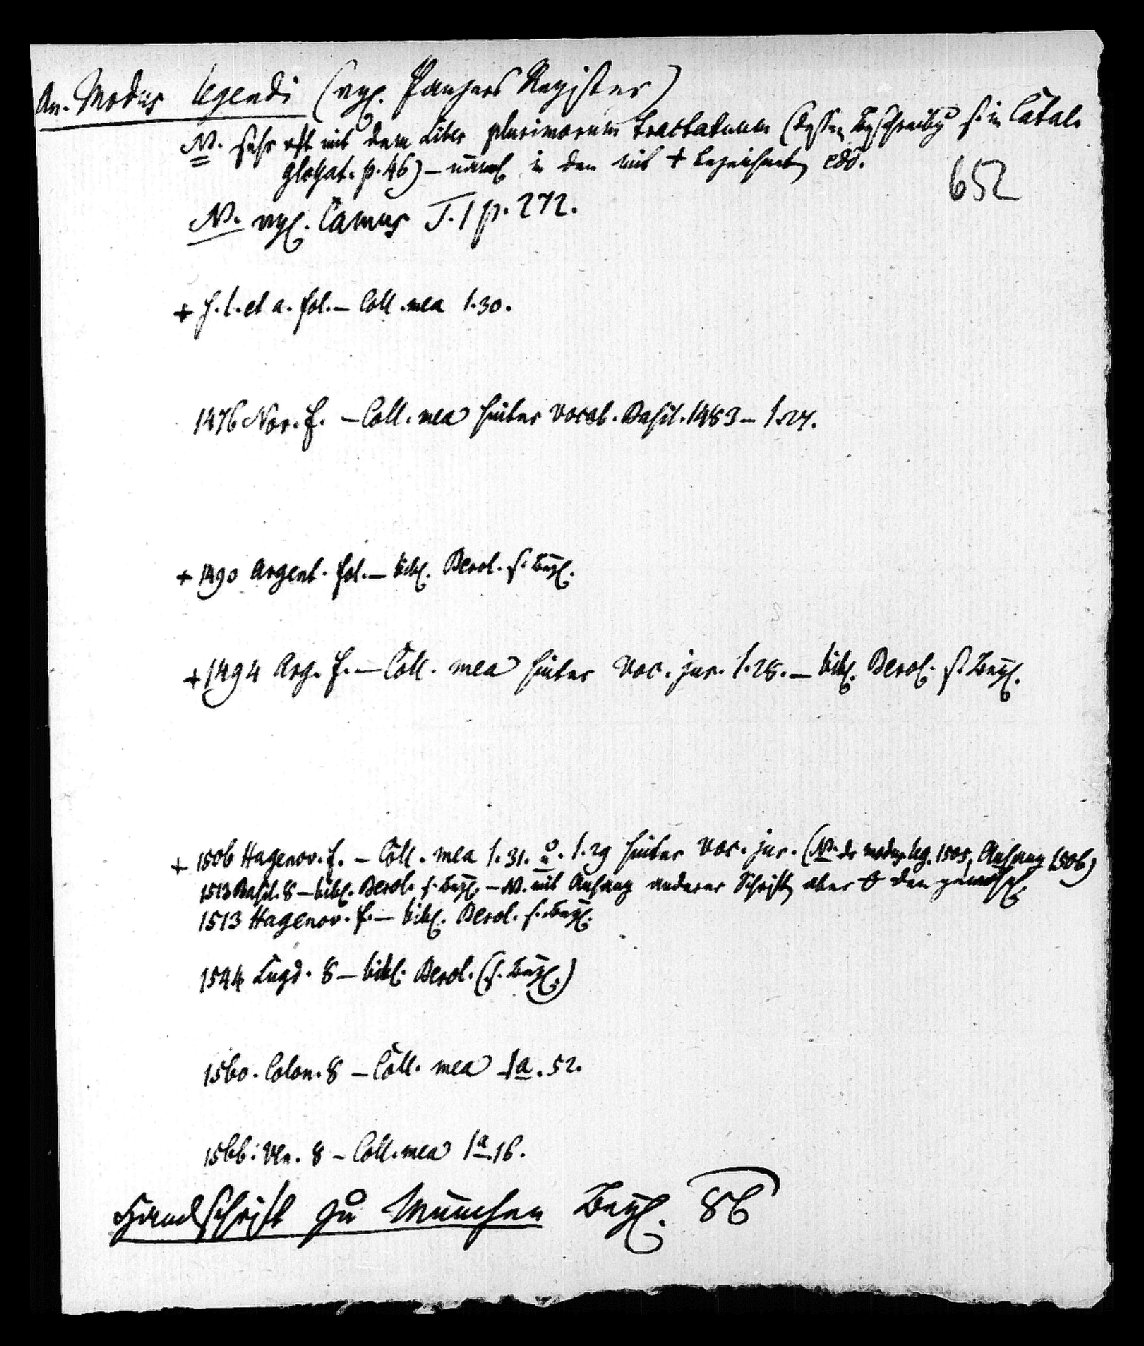 An. Modus legendi (vgl. Panzers Register)
N. sehr oft mit dem Liber plurimorum tractatuum (dessen Beschreibg s. in Catal.
Glossat. p. 46) – in den mit + bezeichneten edd.
652
N. vgl. Camus T. 1 p. 272.
+ s. l. et a. fol. – Coll. mea 1. 30.
1476 Nor. f. – Coll. mea hinter Vocab. Basil. 1483 – 1. 27.
+ 1490 Argent. fol. – bibl. Berol. s. Beyl.
+ 1494 Arg. f. – Coll. mea hinter Voc. jur. 1. 28. – bibl. Berol. s. Beyl.
+ 1506 Hagenov. f. – Coll. mea 1. 31. u. 1. 29 hinter Voc. jur. (N. der modus leg. 1505, Anfang 1506)
1513 Basil. 8 – bibl. Berol. s. Beyl. – N. mit Anhang anderer Schriften aber den
1513 Hagenov. f. – bibl. Berol. s. Beyl.
1544 Lugd. 8 – bibl. Berol. (s. Beyl.)
1560. Colon. 8 – Coll. mea 1a. 52.
1566. Ven. 8 – Coll. mea 1a. 16.
Handschrift zu München Beyl. 86